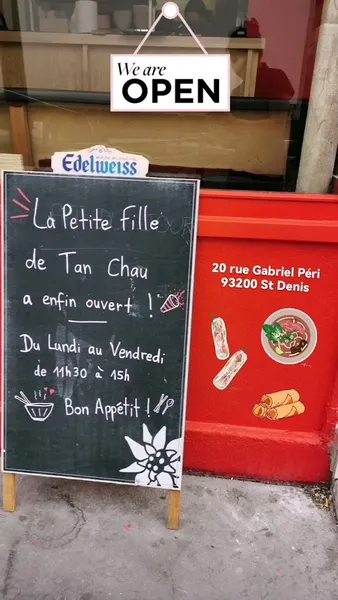 We are
OPEN
Edelweiss
La Petite Fille
de Tan Chau
a enfin ouvert !
Du Lundi au Vendredi
de 11h30 à 15h
Bon Appétit !
20 rue Gabriel Péri
93200 St Denis